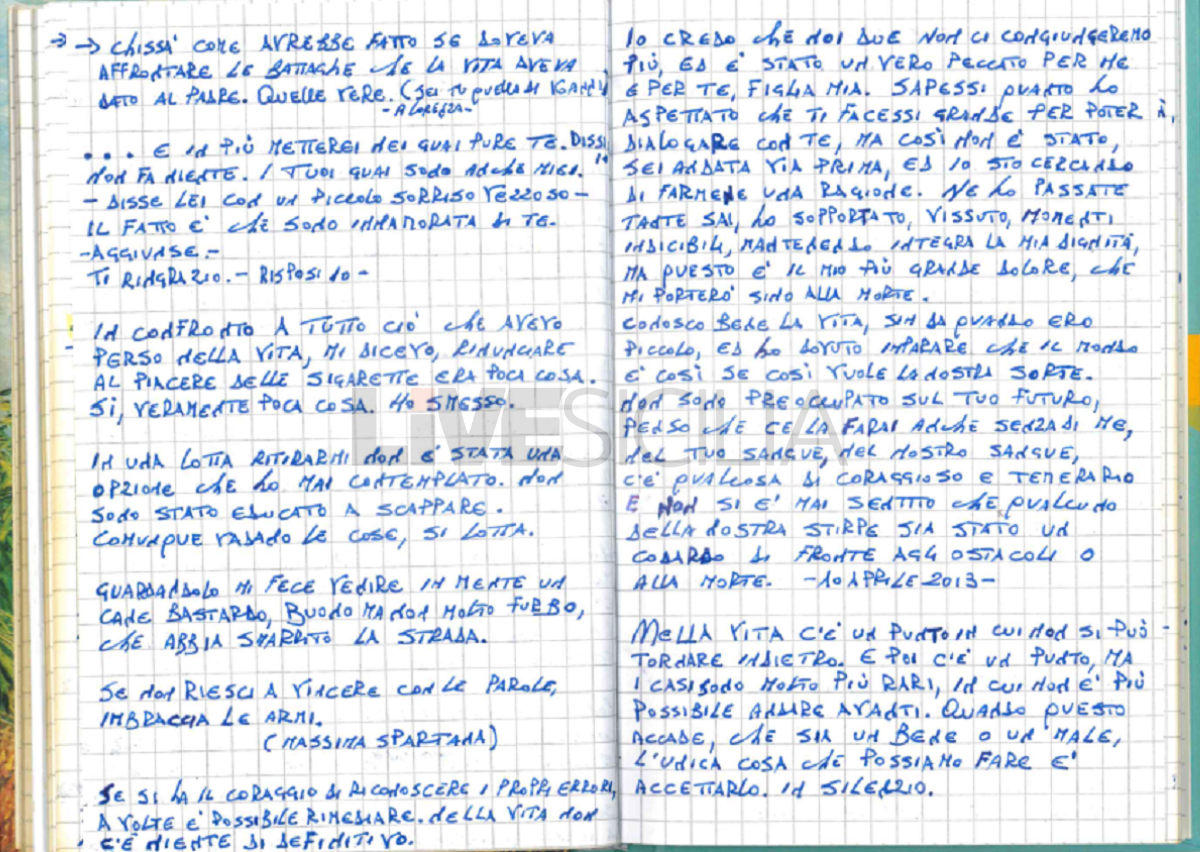 → → CHISSA' COME AVREBBE FATTO SE DOVEVA
AFFRONTARE LE BATTAGLIE CHE LA VITA AVEVA
DATO AL PADRE. QUELLE VERE. (SEI TU QUELLA DI
- A LOREZZA -
.... E IN PIÙ METTEREI NEI GUAI PURE TE. DISSI IO
NON FA NIENTE. I TUOI GUAI SONO ANCHE MIEI.
- DISSE LEI CON UN PICCOLO SORRISO VEZZOSO -
IL FATTO E' CHE SONO INNAMORATA DI TE.
- AGGIUNSE. -
TI RINGRAZIO. - RISPOSI IO -
IN CONFRONTO A TUTTO CIÒ CHE AVEVO
PERSO NELLA VITA, MI DICEVO, RINUNCIARE
AL PIACERE DELLE SIGARETTE ERA POCA COSA.
SI, VERAMENTE POCA COSA. HO SMESSO.
IN UNA LOTTA RITIRARMI NON E' STATA UNA
OPZIONE CHE HO MAI CONTEMPLATO. NON
SONO STATO EDUCATO A SCAPPARE.
COMUNQUE VADANO LE COSE, SI LOTTA.
GUARDANDOLO MI FECE VENIRE IN MENTE UN
CANE BASTARDO, BUONO MA NON MOLTO FURBO,
CHE ABBIA SMARRITO LA STRADA.
SE NON RIESCI A VINCERE CON LE PAROLE,
IMBRACCIA LE ARMI.
(MASSIMA SPARTANA)
SE SI HA IL CORAGGIO DI RICONOSCERE I PROPRI ERRORI,
A VOLTE E' POSSIBILE RIMEDIARE. NELLA VITA NON
C'E' NIENTE DI DEFINITIVO.
IO CREDO CHE NOI DUE NON CI CONGIUNGEREMO
PIÙ, ED E' STATO UN VERO PECCATO PER ME
E PER TE, FIGLIA MIA. SAPESSI QUANTO HO
ASPETTATO CHE TI FACESSI GRANDE PER POTER
DIALOGARE CON TE, MA COSÌ NON E' STATO,
SEI ANDATA VIA PRIMA, ED IO STO CERCANDO
DI FARMENE UNA RAGIONE. NE HO PASSATE
TANTE SAI, HO SOPPORTATO, VISSUTO, MOMENTI
INDICIBILI, MANTENENDO INTEGRA LA MIA DIGNITÀ,
MA QUESTO E' IL MIO PIÙ GRANDE DOLORE, CHE
MI PORTERO' SINO ALLA MORTE.
CONOSCO BENE LA VITA, SIN DA QUANDO ERO
PICCOLO, ED HO DOVUTO IMPARARE CHE IL MONDO
E' COSÌ SE COSÌ VUOLE LA NOSTRA SORTE.
NON SONO PREOCCUPATO SUL TUO FUTURO,
PENSO CHE CE LA FARAI ANCHE SENZA DI ME,
NEL TUO SANGUE, NEL NOSTRO SANGUE,
C'E' QUALCOSA DI CORAGGIOSO E TEMERARIO
E NON SI E' MAI SENTITO CHE QUALCUNO
DELLA NOSTRA STIRPE SIA STATO UN
CODARDO DI FRONTE AGLI OSTACOLI O
ALLA MORTE. - 10 APRILE 2013 -
NELLA VITA C'E' UN PUNTO IN CUI NON SI PUÒ
TORNARE INDIETRO. E POI C'E' UN PUNTO, MA
I CASI SONO MOLTO PIÙ RARI, IN CUI NON E' PIÙ
POSSIBILE ANDARE AVANTI. QUANDO QUESTO
ACCADE, CHE SIA UN BENE O UN MALE,
L'UNICA COSA CHE POSSIAMO FARE E'
ACCETTARLO. IN SILENZIO.
LIVESICILIA